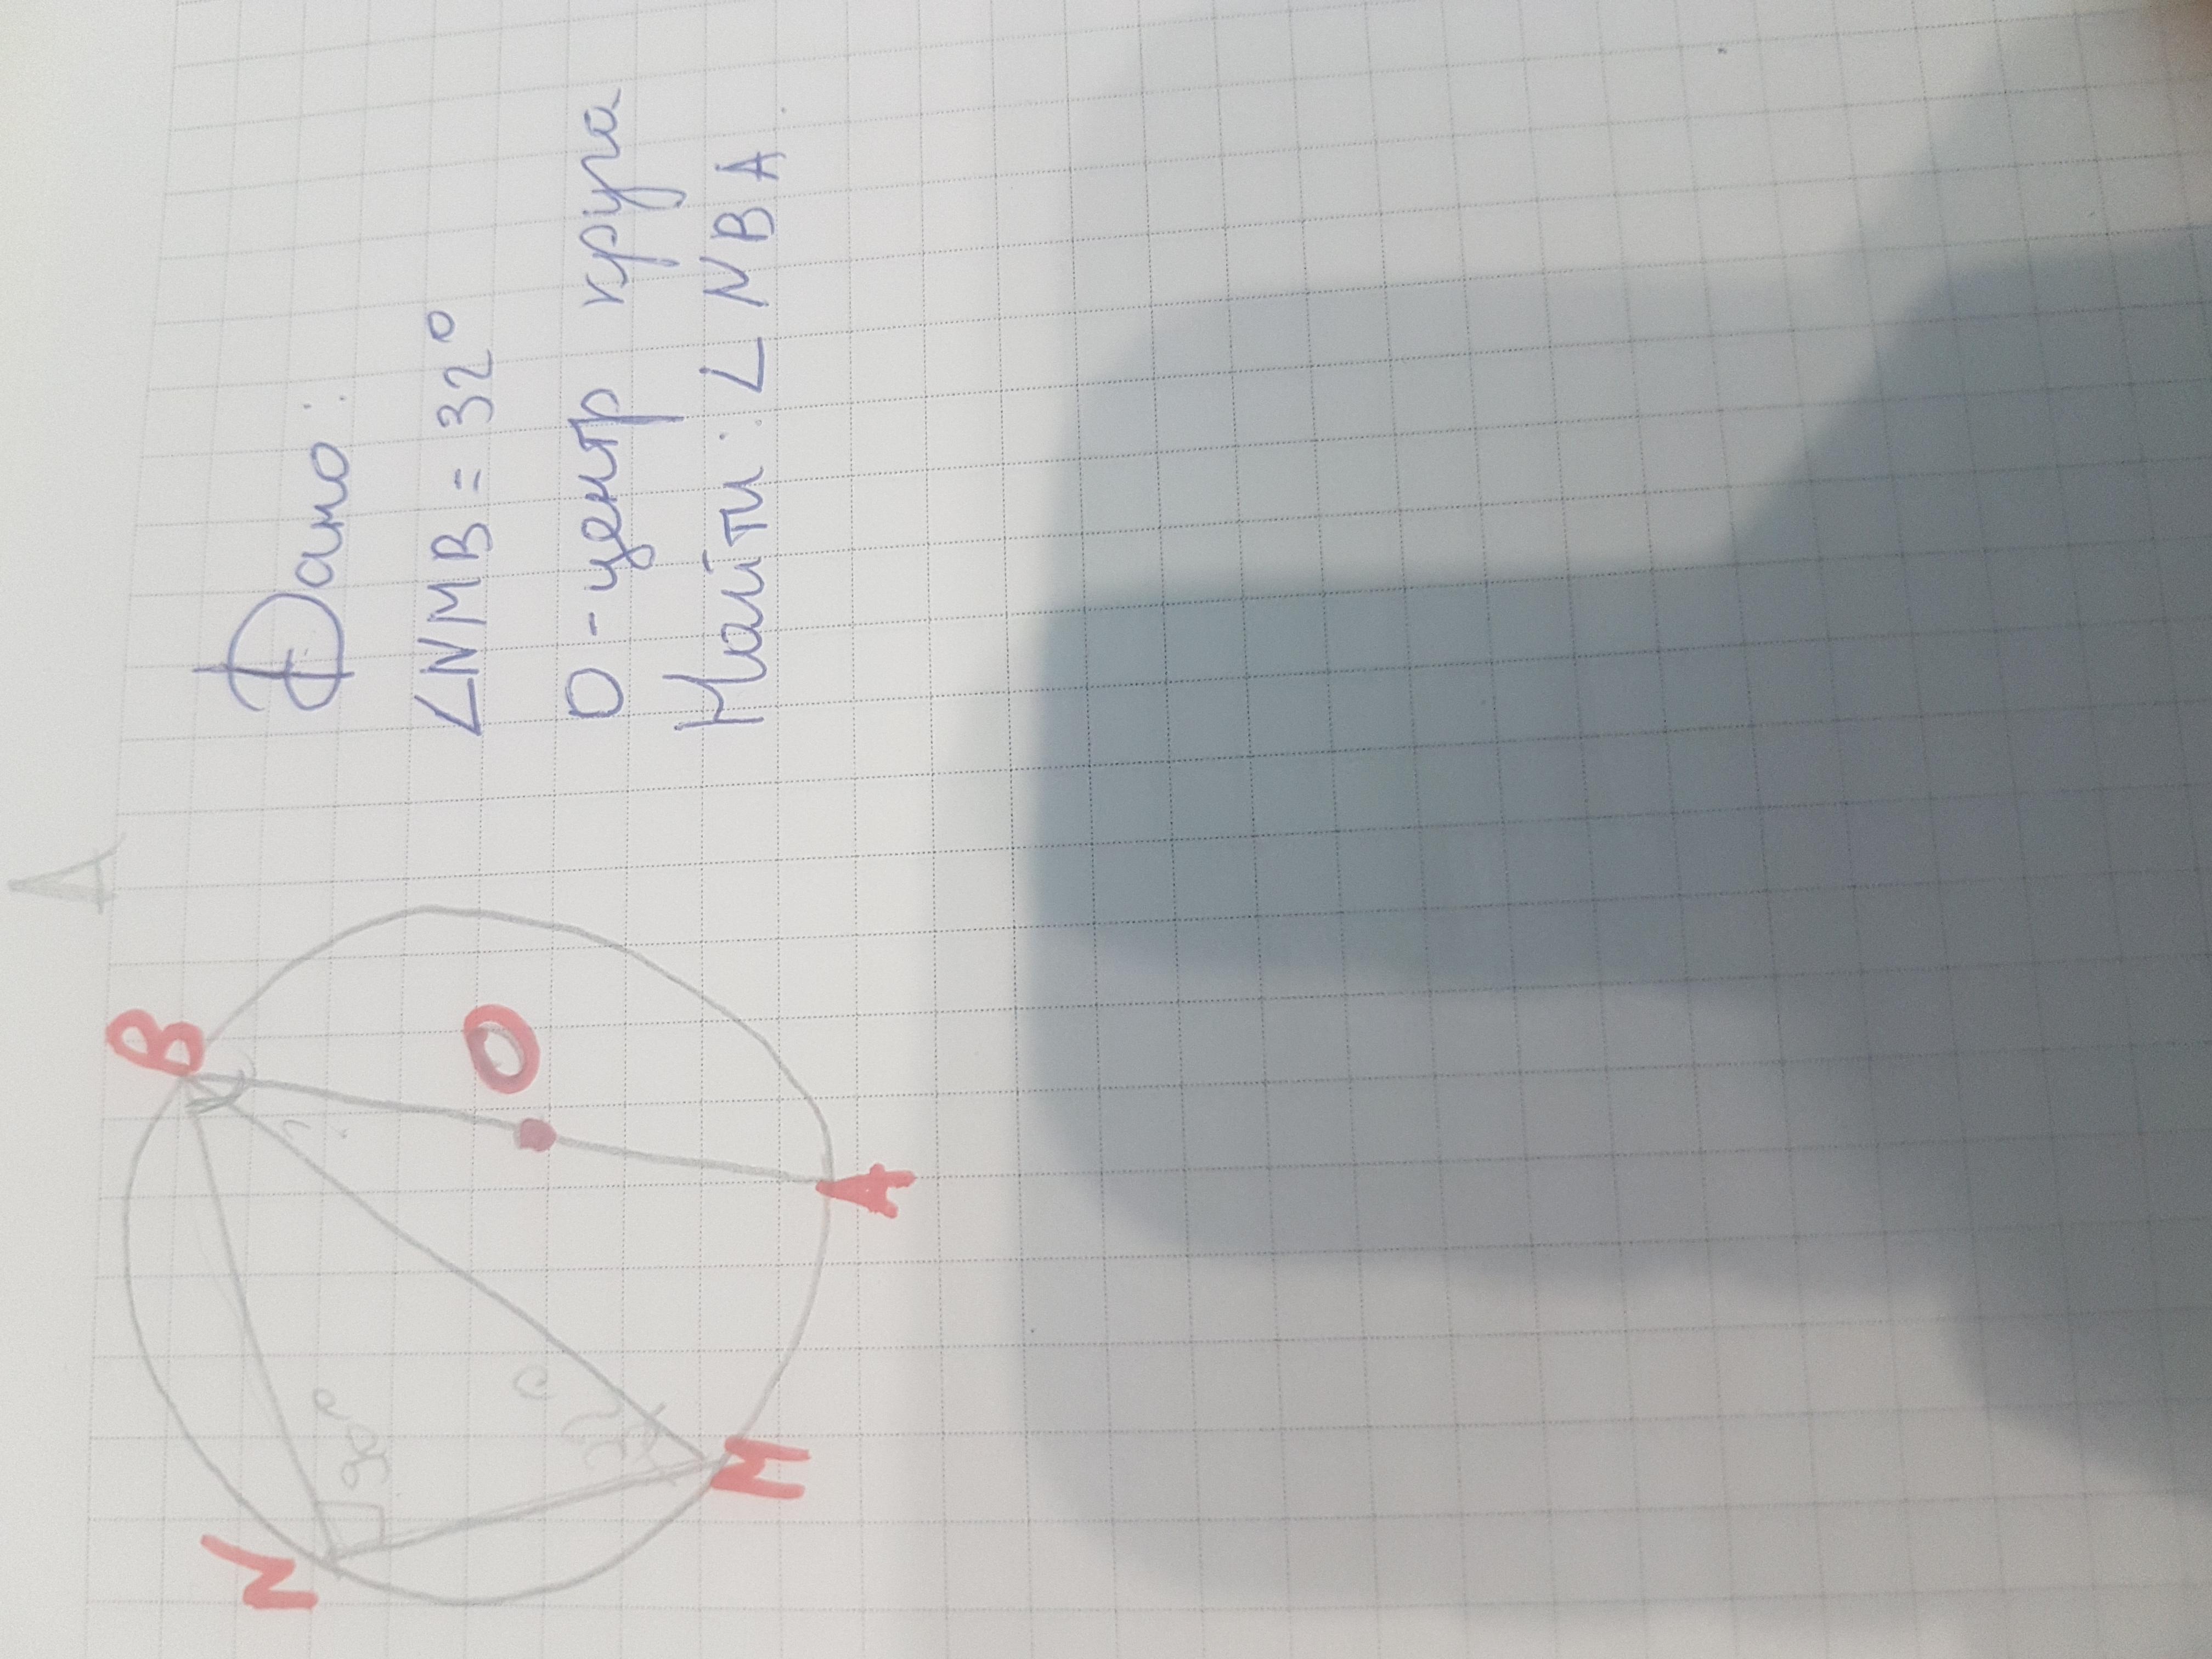 Дано:
∠NMB = 32°
O - центр круга
Найти: ∠NBA
B
O
A
N
M
90°
32°